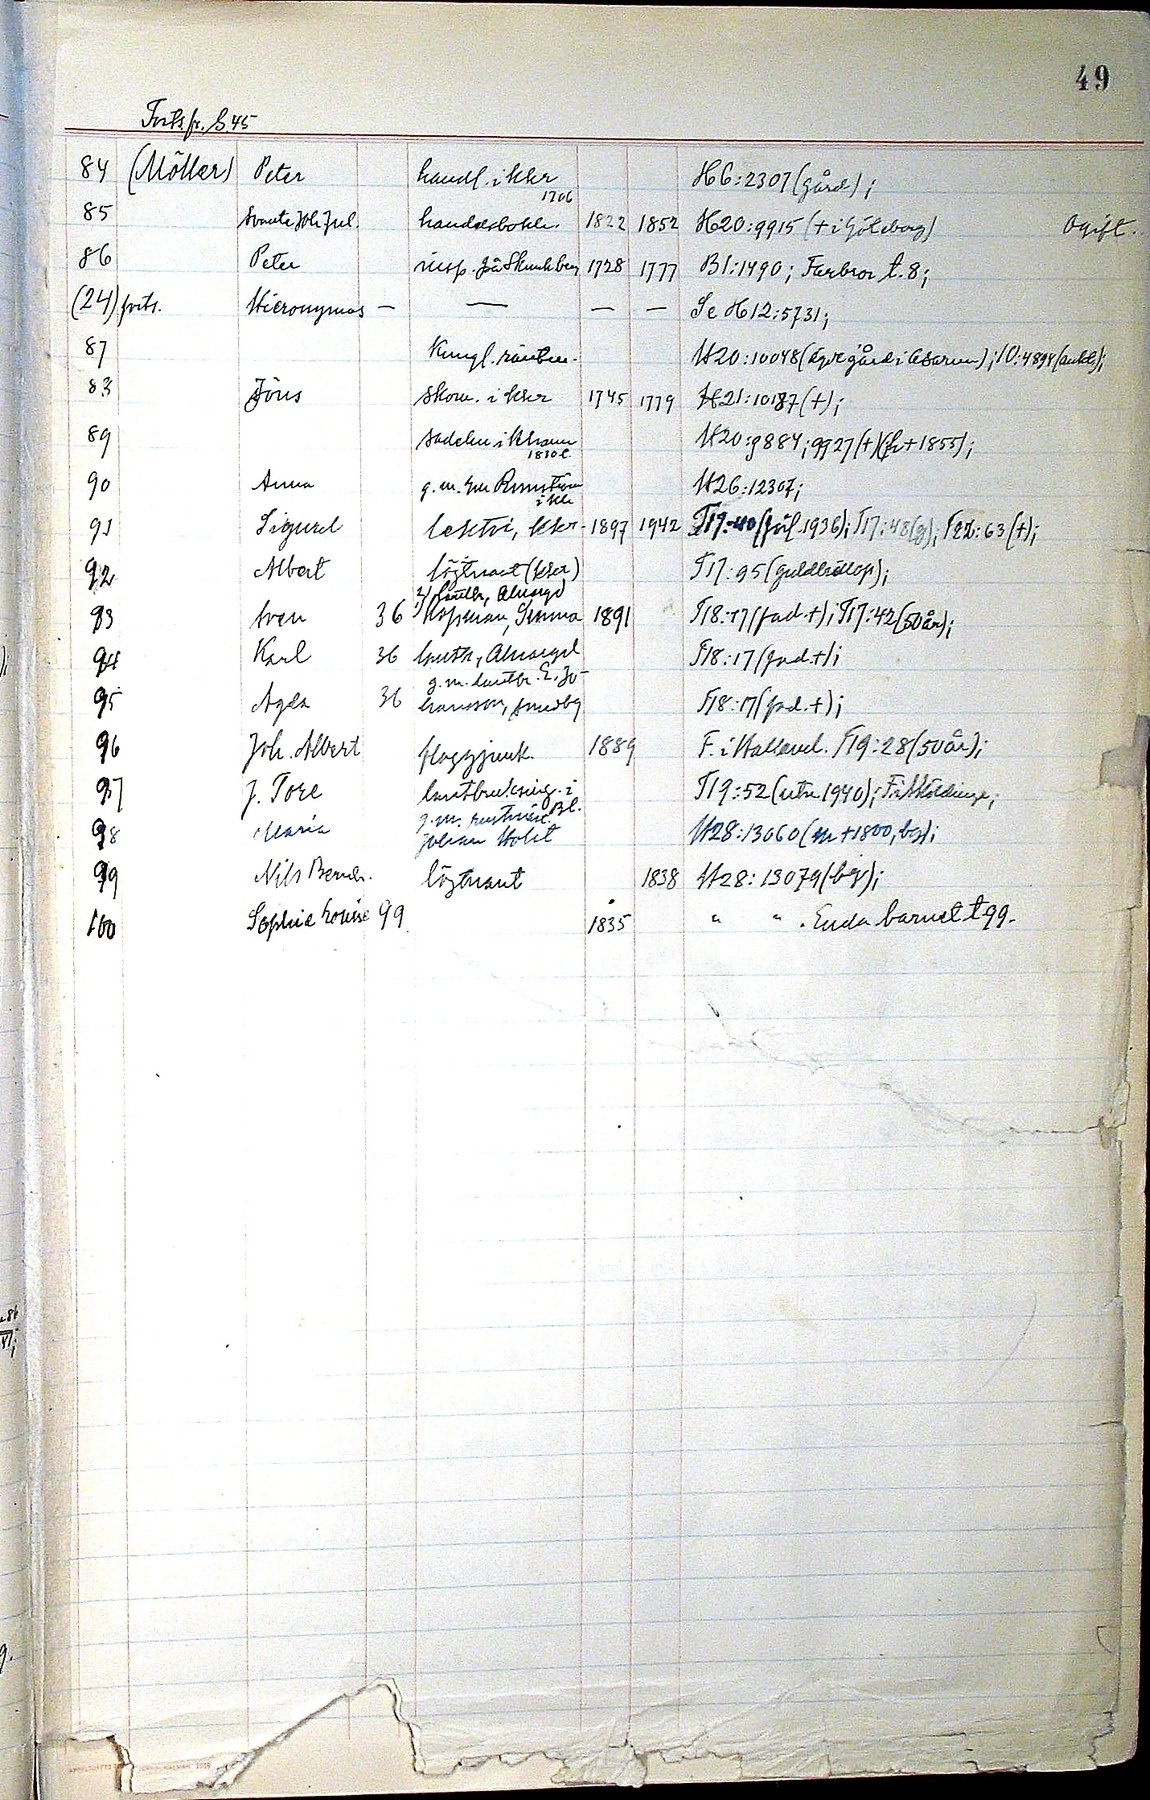 49
Forts fr. S 45
84 (Möller) Peter handl. i Khr 1706 H6:2307 (gård);
85 Svante Joh Jul. handelsbokh. 1822 1852 H20:9915 (+ i Göteborg) Ogift.
86 Peter insp. på Skunkberg 1728 1777 B1:1490; Farbror t. 8;
(24) forts. Hieronymus — — — — Se H12:5731;
87 Kungl. räntm. H20:10048 (ägde gård i Asarum); 10:4894 (ankl);
83 Jöns skom. i Khr 1745 1779 H21:10187 (+);
89 sadelm i Khamn 1830 t. H20:9884; 9927 (+) (fr + 1855);
90 Anna g. m. hm Runström i Khr H26:12307;
91 Sigurd lektor, Khr 1897 1942 T17:40 (jul 1936); T17:48 (g), T22:63 (+);
92 Albert löjtnant (Khr) T17:95 (guldbröllop);
93 Sven 36 2) lantbr, Alnaryd 1) kopman, Senma 1891 T18:17 (fad. +); T17:42 (50 år);
94 Karl 36 lantbr, Alnaryd T18:17 (fad. +);
95 Agda 36 g. m. lantbr. E. Jo-hansson, Smedby T18:17 (fad. +);
96 Joh. Albert flaggjunk. 1889 F. i Hallavel. T19:28 (50 år);
97 J. Tore lantbruksing. i Bl. T19:52 (utn 1940);
98 Maria g. m. rustmäst. Johan Holst H28:13060 (m + 1800, bg);
99 Nils Bernh. löjtnant 1838 H28:13079 (bg);
100 Sophie Lovise 99 1835 " " . Enda barnet t 99.